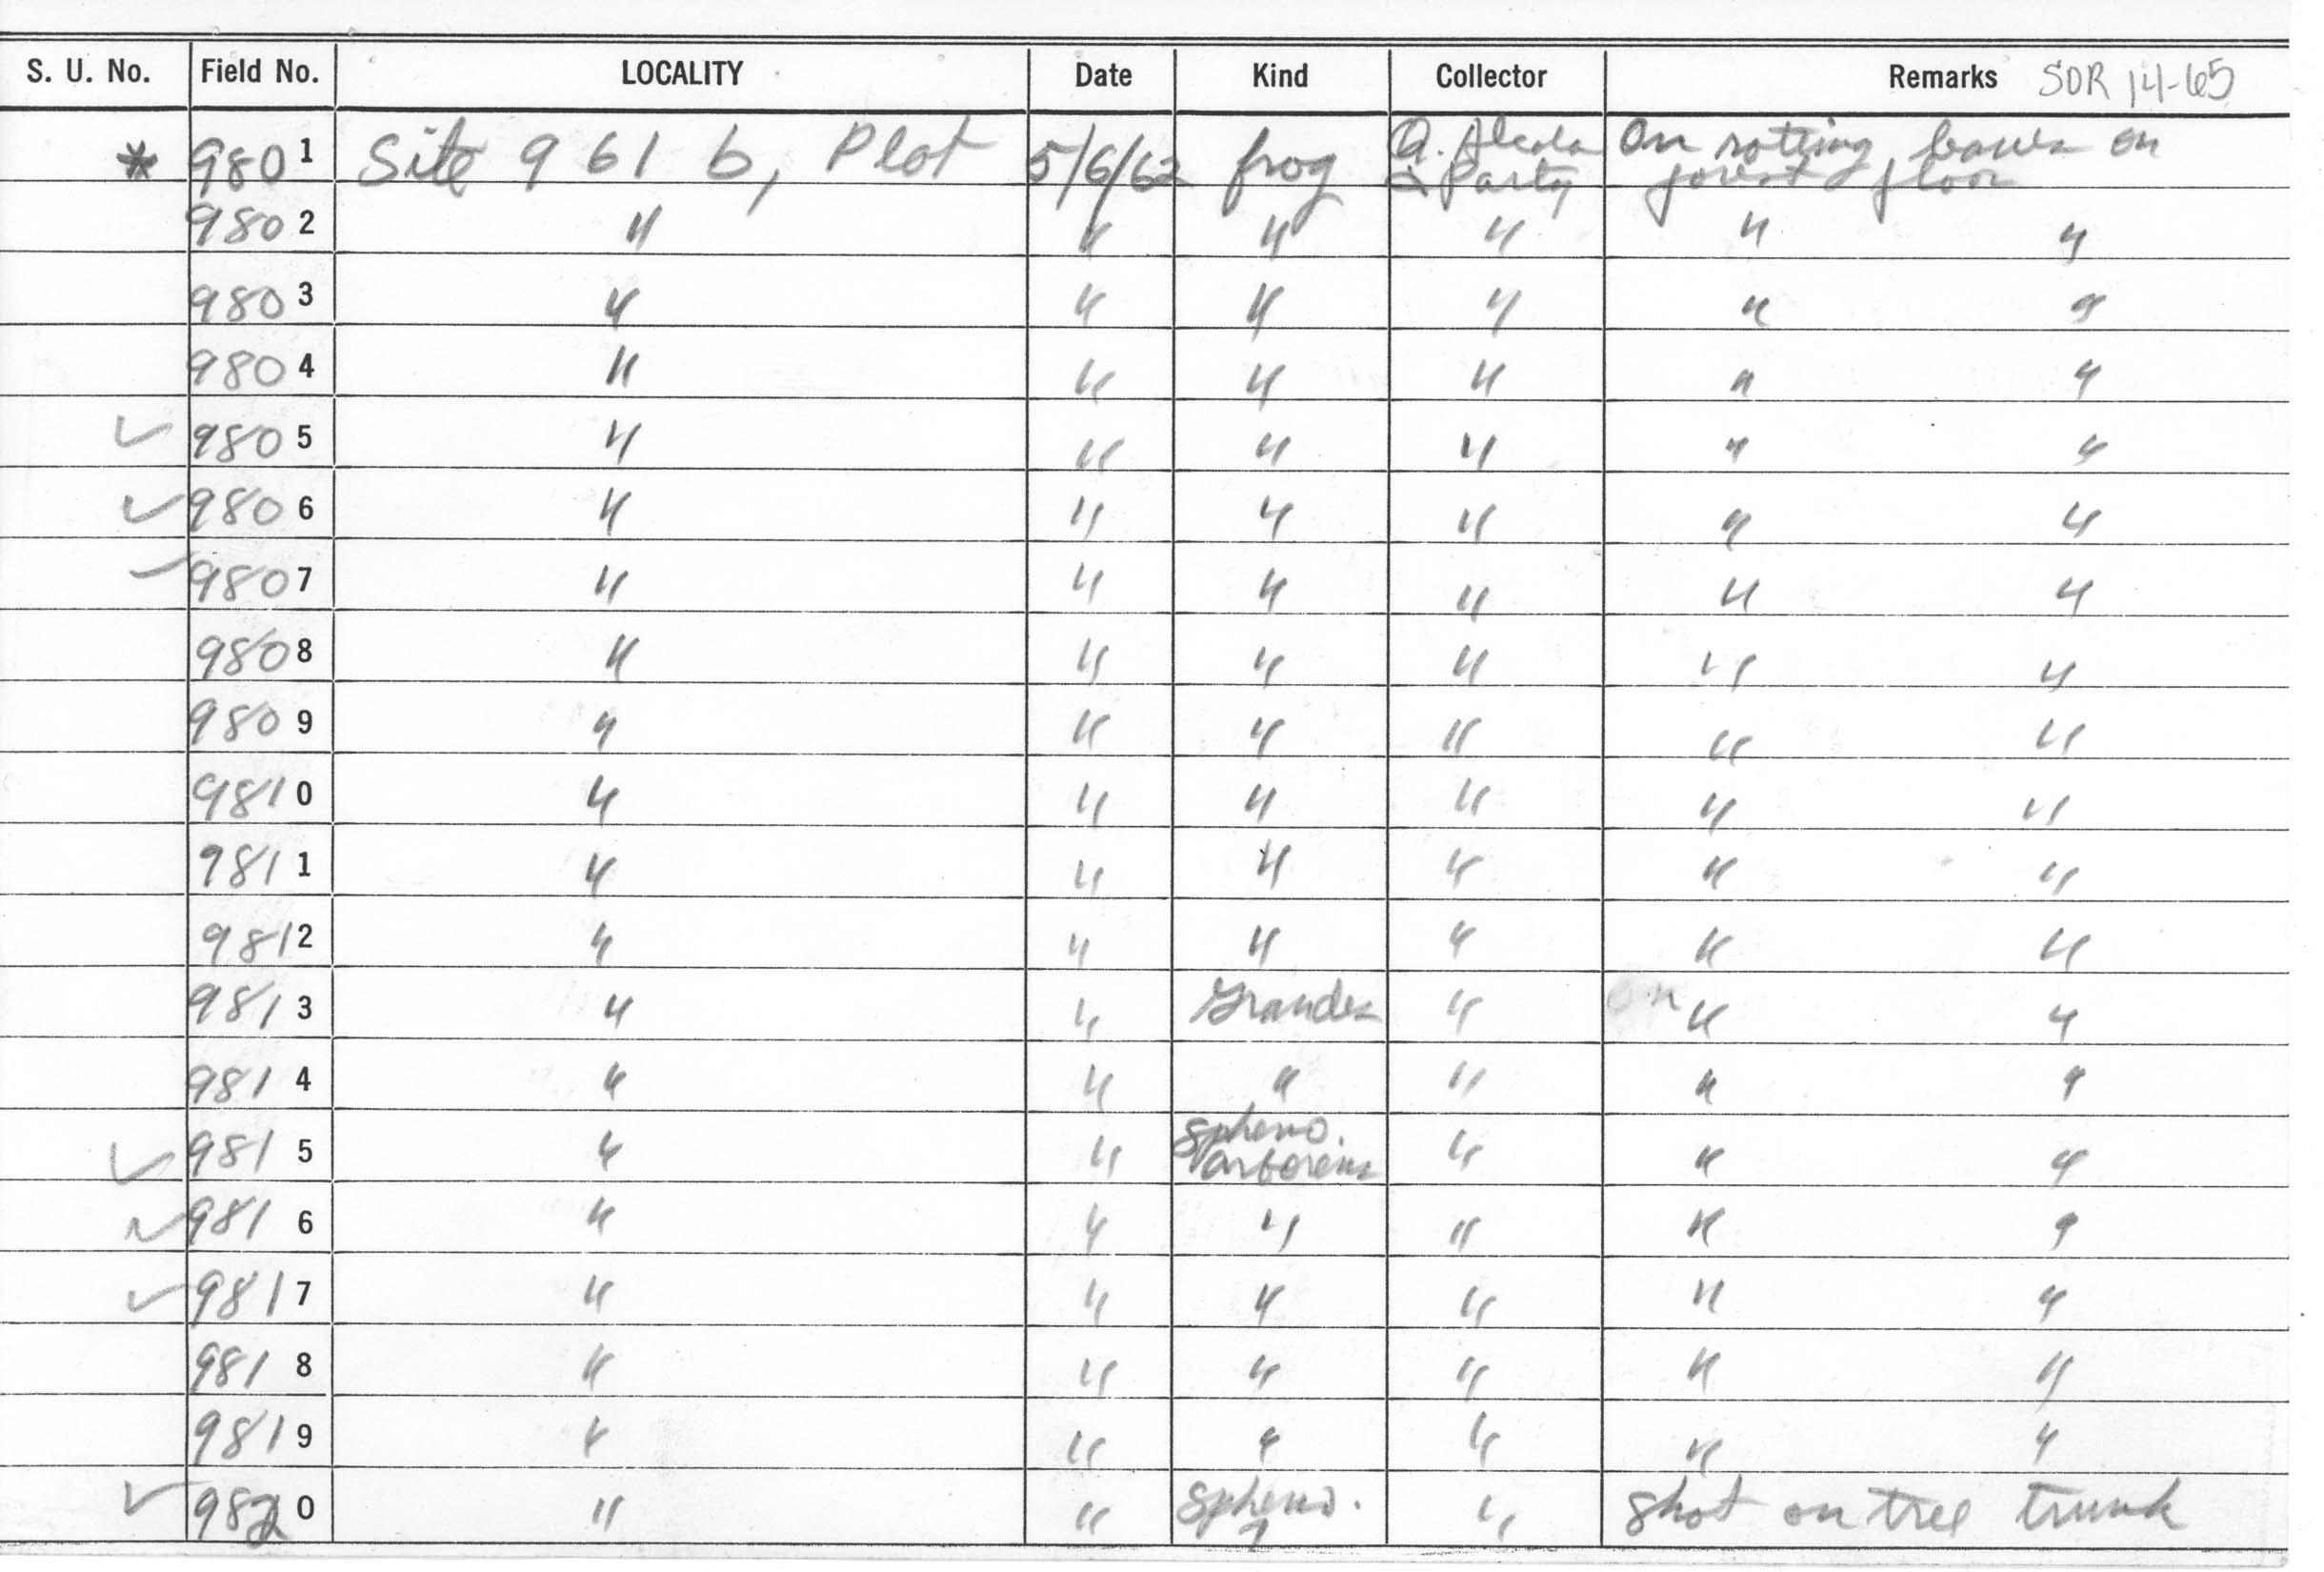 S. U. No. Field No. LOCALITY Date Kind Collector Remarks SDR 14-65
* 9801 Site 961 b, Plot 5/6/62 frog Q. Alcala & Party On rotting leaves on forest floor
9802 " " " " " "
9803 " " " " " "
9804 " " " " " "
✓ 9805 " " " " " "
✓ 9806 " " " " " "
✓ 9807 " " " " " "
9808 " " " " " "
9809 " " " " " "
9810 " " " " " "
9811 " " " " " "
9812 " " " " " "
9813 " " Grandes " On " "
9814 " " " " " "
✓ 9815 " " Spheno. arboreus " " "
✓ 9816 " " " " " "
✓ 9817 " " " " " "
9818 " " " " " "
9819 " " " " " "
✓ 9820 " " Spheno. " Shot on tree trunk